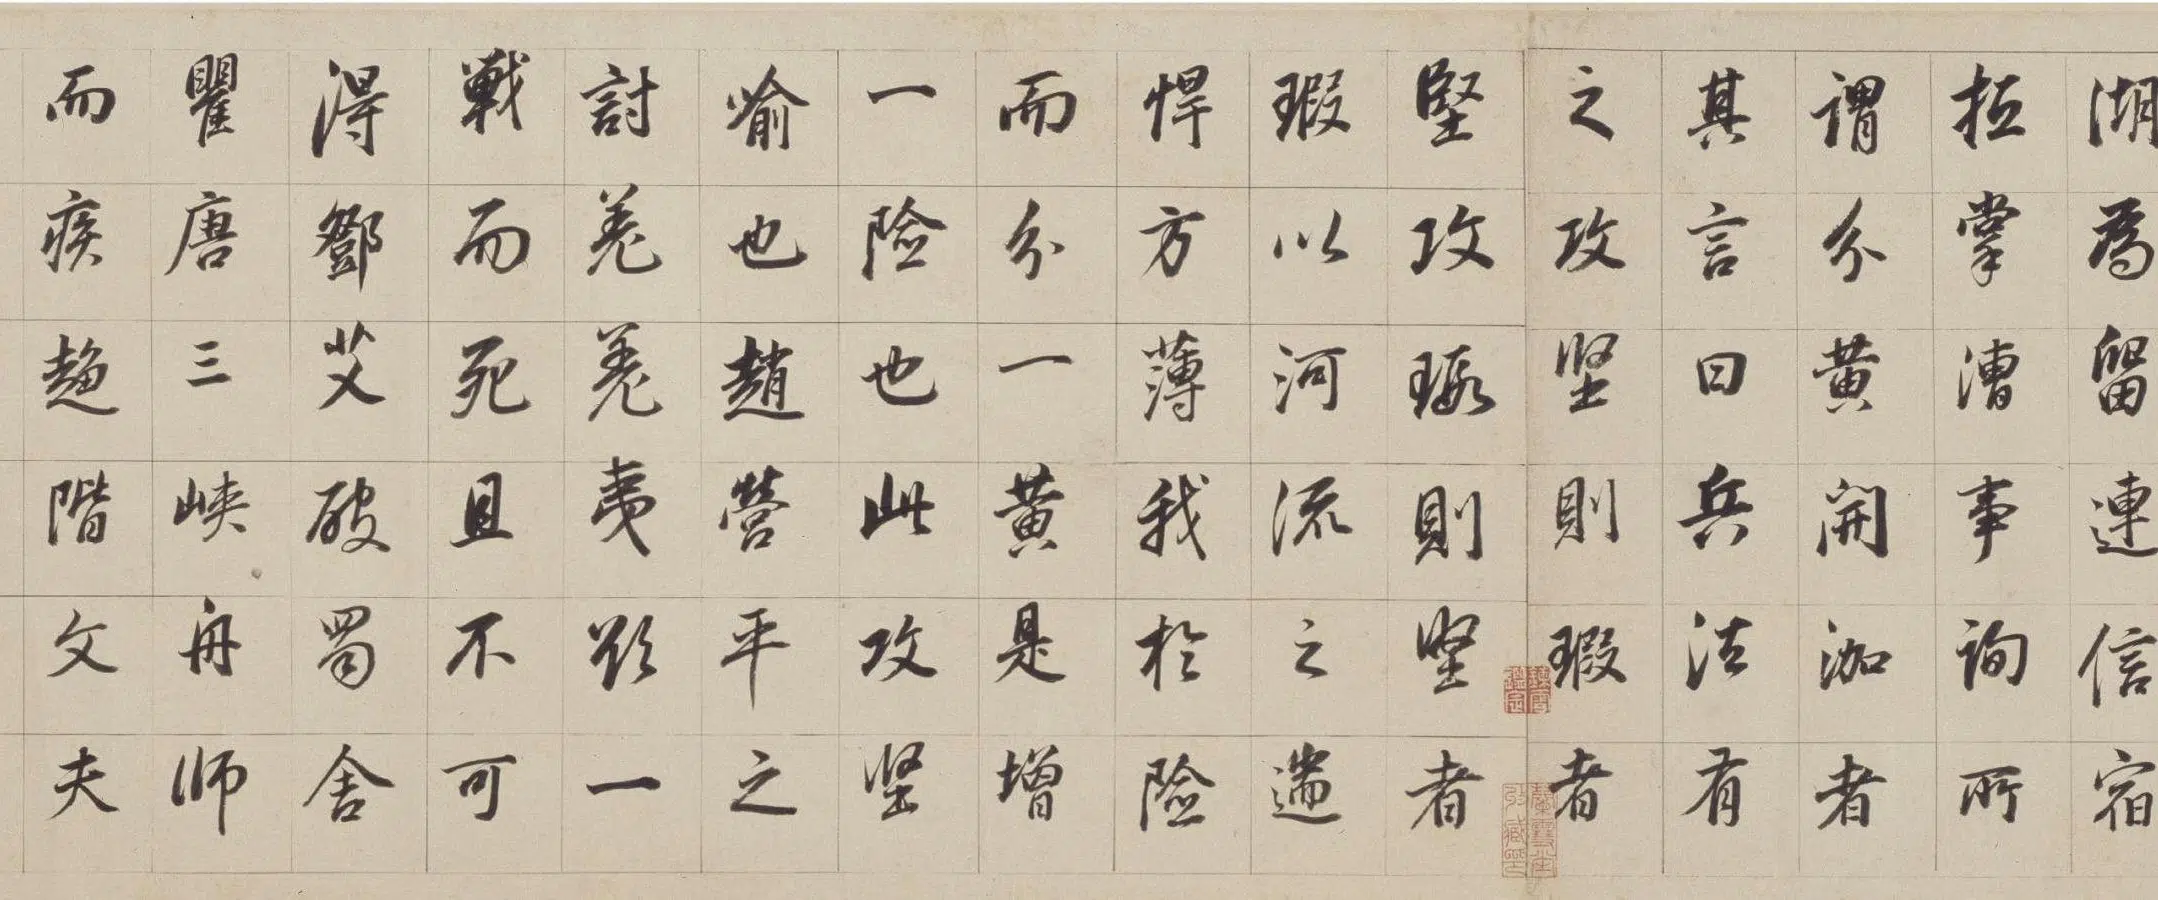 湖為留連信宿
抵掌漕事詢所
謂分黃開泇者
其言曰兵法有
之攻堅則瑕者
堅攻瑕則堅者
瑕以河流之遄
悍方薄我於險
而分一黃是增
一險也此攻堅
喻也趙營平之
討羌羌夷欲一
戰而死且不可
得鄧艾破蜀舍
瞿唐三峽舟師
而疾趨階文夫